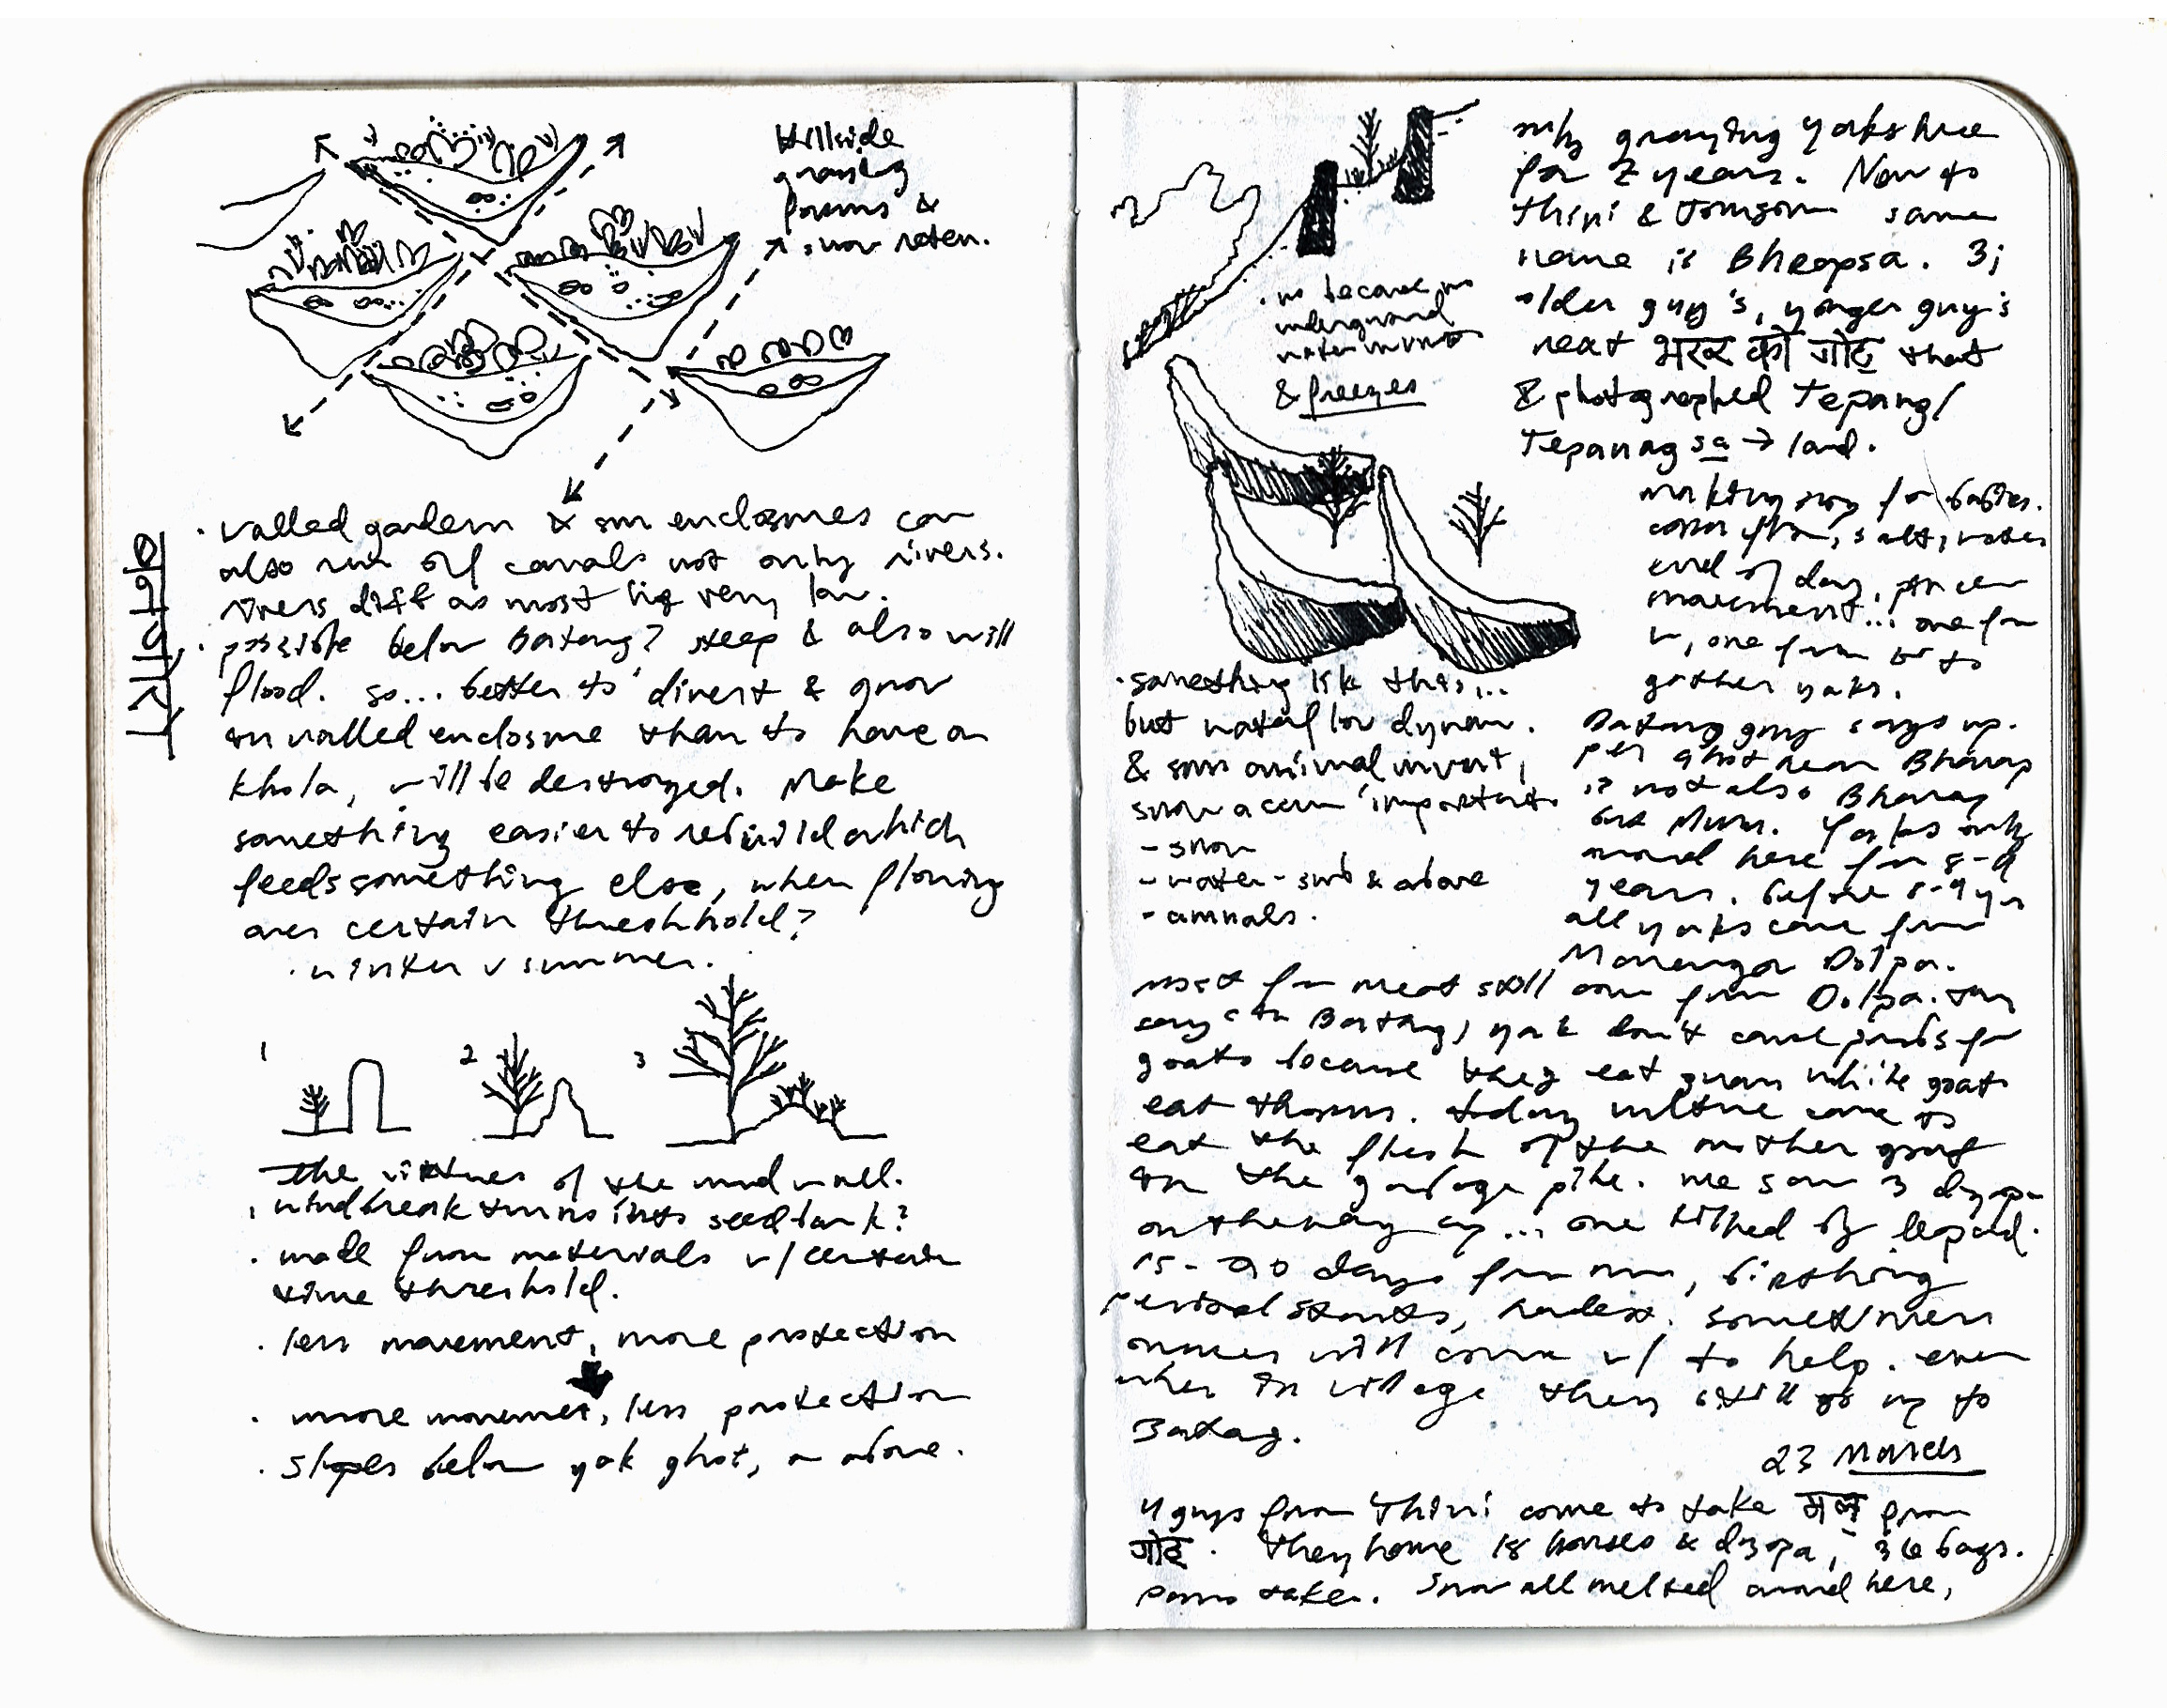 Hillside
grazing
forms &
snow water.
• walled garden & sm enclosures can
also run off canals not only rivers.
rivers diff as most big very low.
• possible below Bartang? steep & also will
flood. so... better to divert & grow
in walled enclosure than to have a
khola, will be destroyed. Make
something easier to rebuild which
feeds something else, when flowing
over certain threshhold?
• winter v summer.
1 2 3
the virtues of the mud wall.
• windbreak turns into seedbank?
• made from materials w/ certain
time threshold.
• less movement, more protection
• more movement, less protection
• slopes below yak ghot, or above.
only grazing yaks here
for 2 years. Now to
Thini & Jomsom same
name is Bhrapsa. 3;
older guy's, yonger guy's
neat भरक को गोठ that
& photographed Tepang/
Tepanag sa → land.
• no because no
underground
water
& freezes
for babies.
salt, water
end of day,
movement... one for
one from to
gather yaks.
• something lik this...
but waterflow dynam.
& some animal invert,
snow accum important.
- snow
- water - sub & above
- animals.
guy says up.
per ghot near Bharap
is not also Bharap
but Yaks only
around here for 8-9
years. before 8-9 yr
all yaks came from
Manang or Dolpa.
most for meat still come from Dolpa.
yak don't cause probs for
goats because they eat grass while goats
eat thorns. today vulture came to
eat the flesh of the mother goat
on the garbage pile. we saw 3 dzopa
on the way up... one killed by leopard.
15-20 days from now, birthing
period starts, hardest. sometimes
owners will come w/ to help. even
when in village they still go up to
Batag.
23 March
4 guys from Thini come to take मल from
गोठ. they have 18 horses & dzopa, 36 bags.
taken. Snow all melted around here,